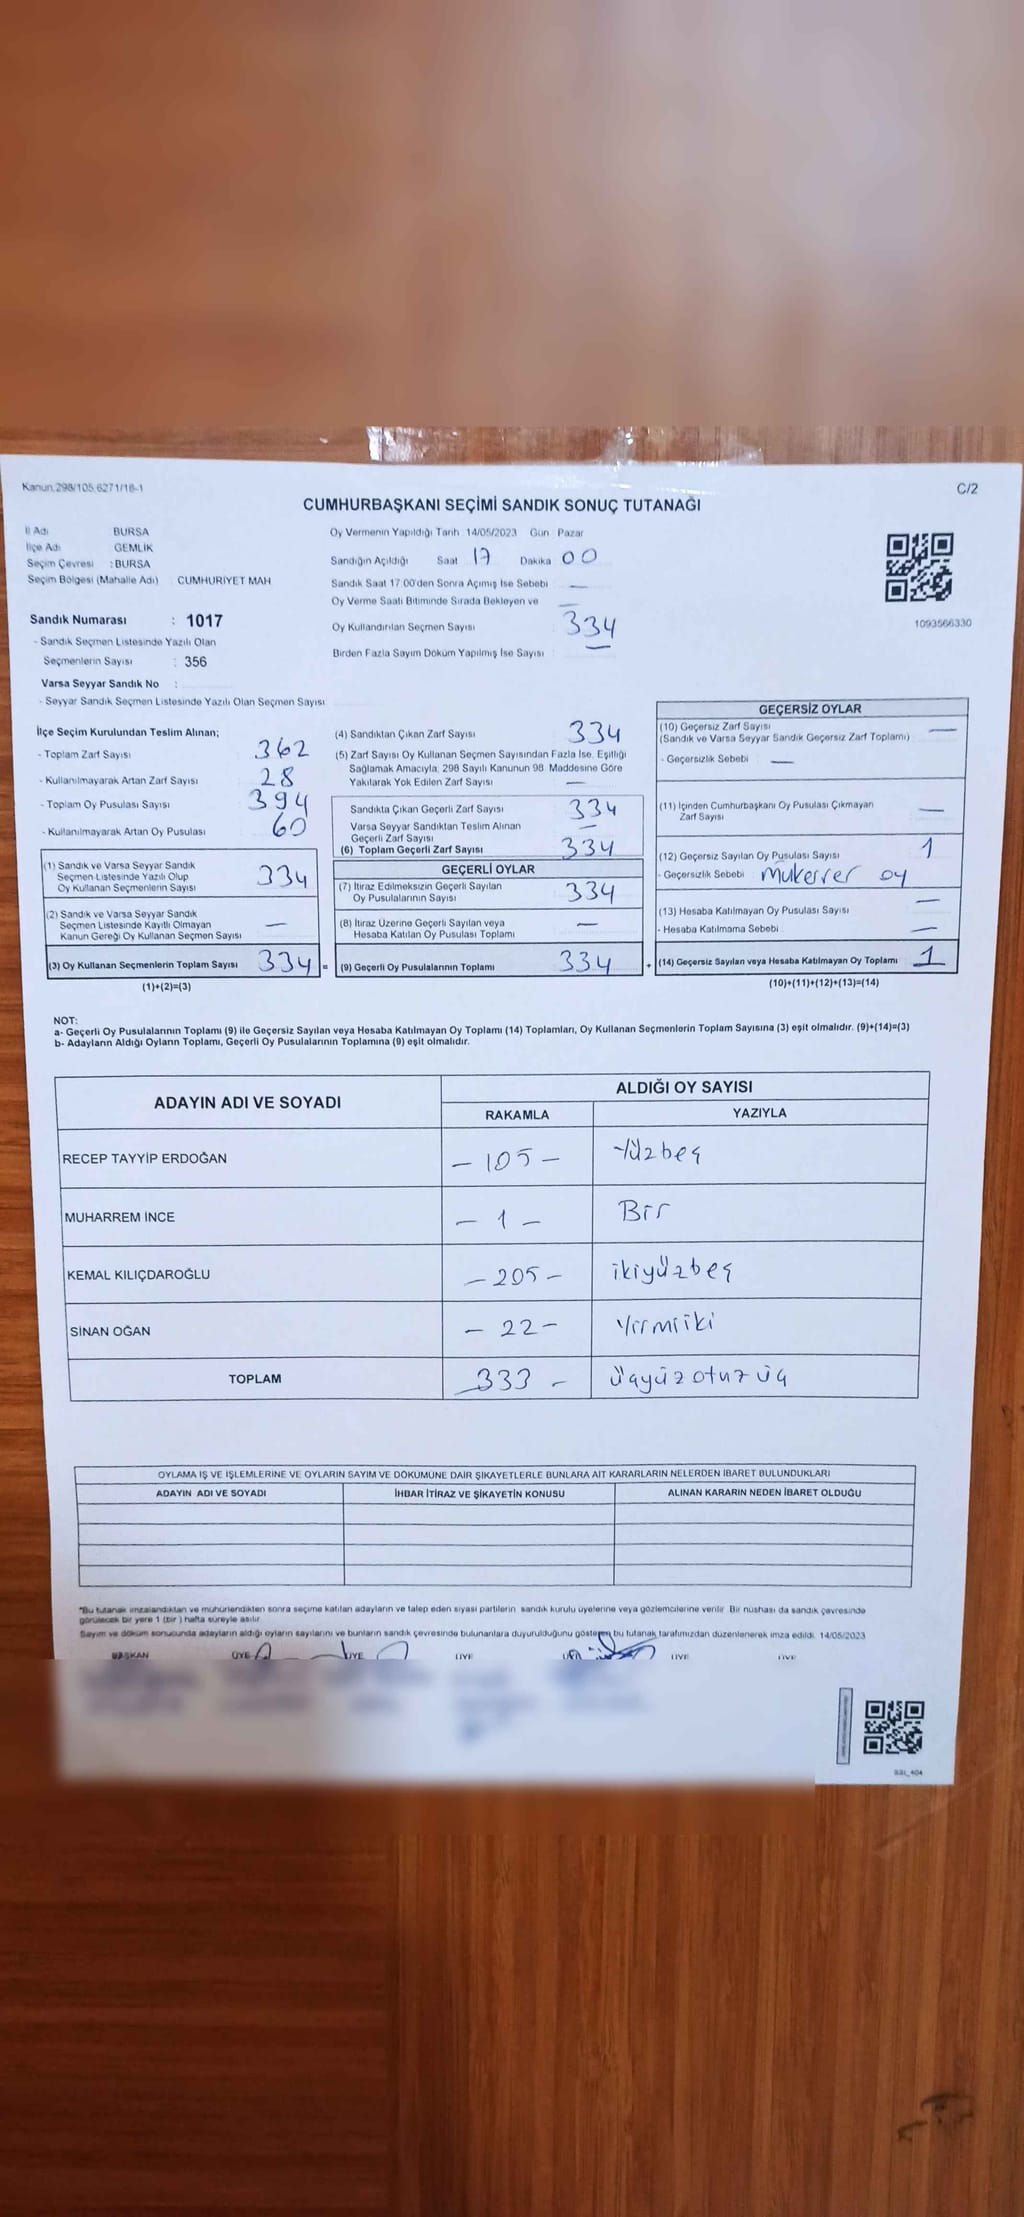 Kanun: 298/105, 6271/16-1
C/2
CUMHURBAŞKANI SEÇİMİ SANDIK SONUÇ TUTANAĞI
İl Adı BURSA
İlçe Adı GEMLİK
Seçim Çevresi : BURSA
Seçim Bölgesi (Mahalle Adı) CUMHURİYET MAH
Sandık Numarası : 1017
- Sandık Seçmen Listesinde Yazılı Olan
Seçmenlerin Sayısı : 356
Varsa Seyyar Sandık No :
- Seyyar Sandık Seçmen Listesinde Yazılı Olan Seçmen Sayısı
Oy Vermenin Yapıldığı Tarih 14/05/2023 Gün Pazar
Sandığın Açıldığı Saat 17 Dakika 00
Sandık Saat 17:00'den Sonra Açımış İse Sebebi —
Oy Verme Saati Bitiminde Sırada Bekleyen ve
Oy Kullandırılan Seçmen Sayısı — 334
Birden Fazla Sayım Döküm Yapılmış İse Sayısı —
1093566330
İlçe Seçim Kurulundan Teslim Alınan;
- Toplam Zarf Sayısı 362
- Kullanılmayarak Artan Zarf Sayısı 28
- Toplam Oy Pusulası Sayısı 394
- Kullanılmayarak Artan Oy Pusulası 60
(1) Sandık ve Varsa Seyyar Sandık
Seçmen Listesinde Yazılı Olup
Oy Kullanan Seçmenlerin Sayısı 334
(2) Sandık ve Varsa Seyyar Sandık
Seçmen Listesinde Kayıtlı Olmayan
Kanun Gereği Oy Kullanan Seçmen Sayısı —
(3) Oy Kullanan Seçmenlerin Toplam Sayısı 334 =
(1)+(2)=(3)
(4) Sandıktan Çıkan Zarf Sayısı 334
(5) Zarf Sayısı Oy Kullanan Seçmen Sayısından Fazla İse, Eşitliği
Sağlamak Amacıyla, 298 Sayılı Kanunun 98. Maddesine Göre
Yakılarak Yok Edilen Zarf Sayısı —
Sandıkta Çıkan Geçerli Zarf Sayısı 334
Varsa Seyyar Sandıktan Teslim Alınan
Geçerli Zarf Sayısı —
(6) Toplam Geçerli Zarf Sayısı 334
GEÇERLİ OYLAR
(7) İtiraz Edilmeksizin Geçerli Sayılan
Oy Pusulalarının Sayısı 334
(8) İtiraz Üzerine Geçerli Sayılan veya
Hesaba Katılan Oy Pusulası Toplamı —
(9) Geçerli Oy Pusulalarının Toplamı 334 +
GEÇERSİZ OYLAR
(10) Geçersiz Zarf Sayısı —
(Sandık ve Varsa Seyyar Sandık Geçersiz Zarf Toplamı)
- Geçersizlik Sebebi —
(11) İçinden Cumhurbaşkanı Oy Pusulası Çıkmayan
Zarf Sayısı —
(12) Geçersiz Sayılan Oy Pusulası Sayısı 1
- Geçersizlik Sebebi mükerrer oy
(13) Hesaba Katılmayan Oy Pusulası Sayısı —
- Hesaba Katılmama Sebebi —
(14) Geçersiz Sayılan veya Hesaba Katılmayan Oy Toplamı 1
(10)+(11)+(12)+(13)=(14)
NOT:
a- Geçerli Oy Pusulalarının Toplamı (9) ile Geçersiz Sayılan veya Hesaba Katılmayan Oy Toplamı (14) Toplamları, Oy Kullanan Seçmenlerin Toplam Sayısına (3) eşit olmalıdır. (9)+(14)=(3)
b- Adayların Aldığı Oyların Toplamı, Geçerli Oy Pusulalarının Toplamına (9) eşit olmalıdır.
ADAYIN ADI VE SOYADI
ALDIĞI OY SAYISI
RAKAMLA YAZIYLA
RECEP TAYYİP ERDOĞAN – 105 – Yüzbeş
MUHARREM İNCE – 1 – Bir
KEMAL KILIÇDAROĞLU – 205 – ikiyüzbeş
SİNAN OĞAN – 22 – Yirmiiki
TOPLAM – 333 – üçyüzotuzüç
OYLAMA İŞ VE İŞLEMLERİNE VE OYLARIN SAYIM VE DÖKÜMÜNE DAİR ŞİKAYETLERLE BUNLARA AİT KARARLARIN NELERDEN İBARET BULUNDUKLARI
ADAYIN ADI VE SOYADI İHBAR İTİRAZ VE ŞİKAYETİN KONUSU ALINAN KARARIN NEDEN İBARET OLDUĞU
*Bu tutanak imzalandıktan ve mühürlendikten sonra seçime katılan adayların ve talep eden siyasi partilerin sandık kurulu üyelerine veya gözlemcilerine verilir. Bir nüshası da sandık çevresinde
görülecek bir yere 1 (bir) hafta süreyle asılır.
Sayım ve döküm sonucunda adayların aldığı oyların sayılarını ve bunların sandık çevresinde bulunanlara duyurulduğunu gösteren bu tutanak tarafımızdan düzenlenerek imza edildi. 14/05/2023
BAŞKAN ÜYE ÜYE ÜYE ÜYE ÜYE